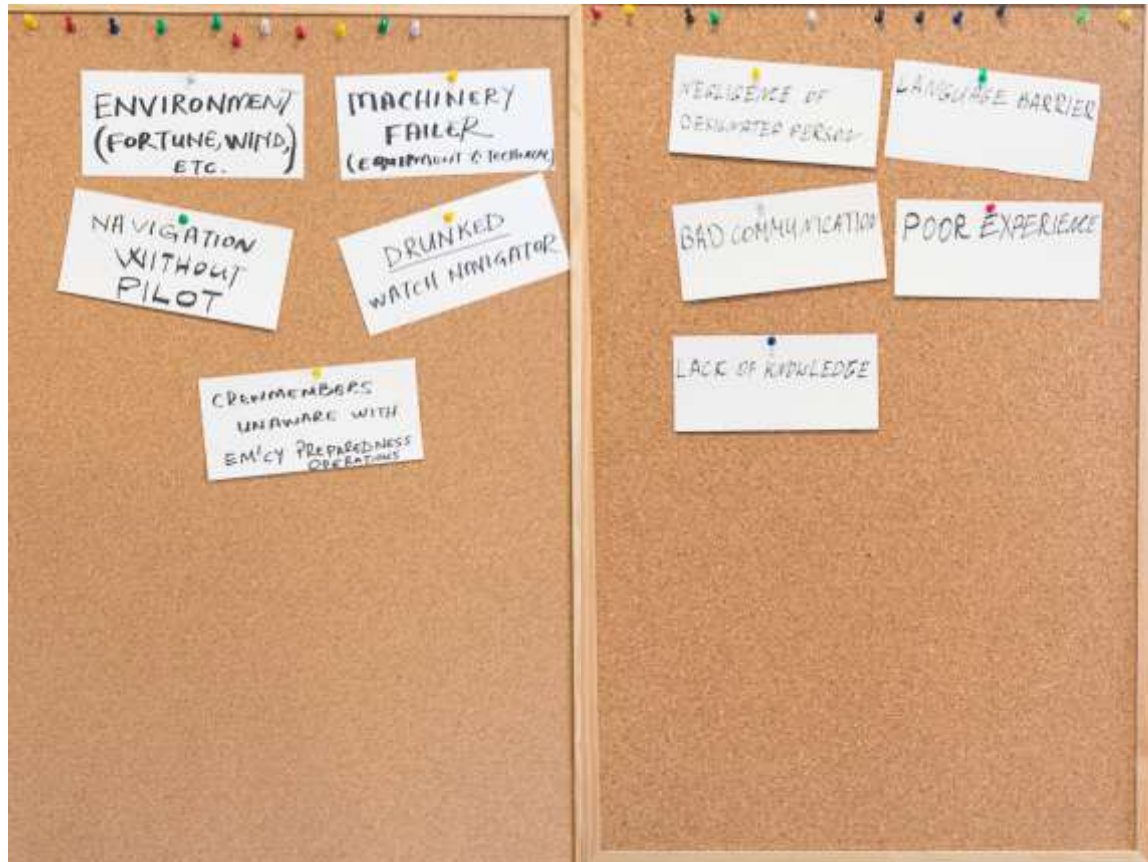 ENVIRONMENT
(FORTUNE, WIND,)
ETC.
MACHINERY
FAILER
(EQUIPMENT & TECHNICAL)
NAVIGATION
WITHOUT
PILOT
DRUNKED
WATCH NAVIGATOR
CREWMEMBERS
UNAWARE WITH
EM'CY PREPAREDNESS
OPERATIONS
NEGLIGENCE OF
DESIGNATED PERSON
LANGUAGE BARRIER
BAD COMMUNICATION
POOR EXPERIENCE
LACK OF KNOWLEDGE